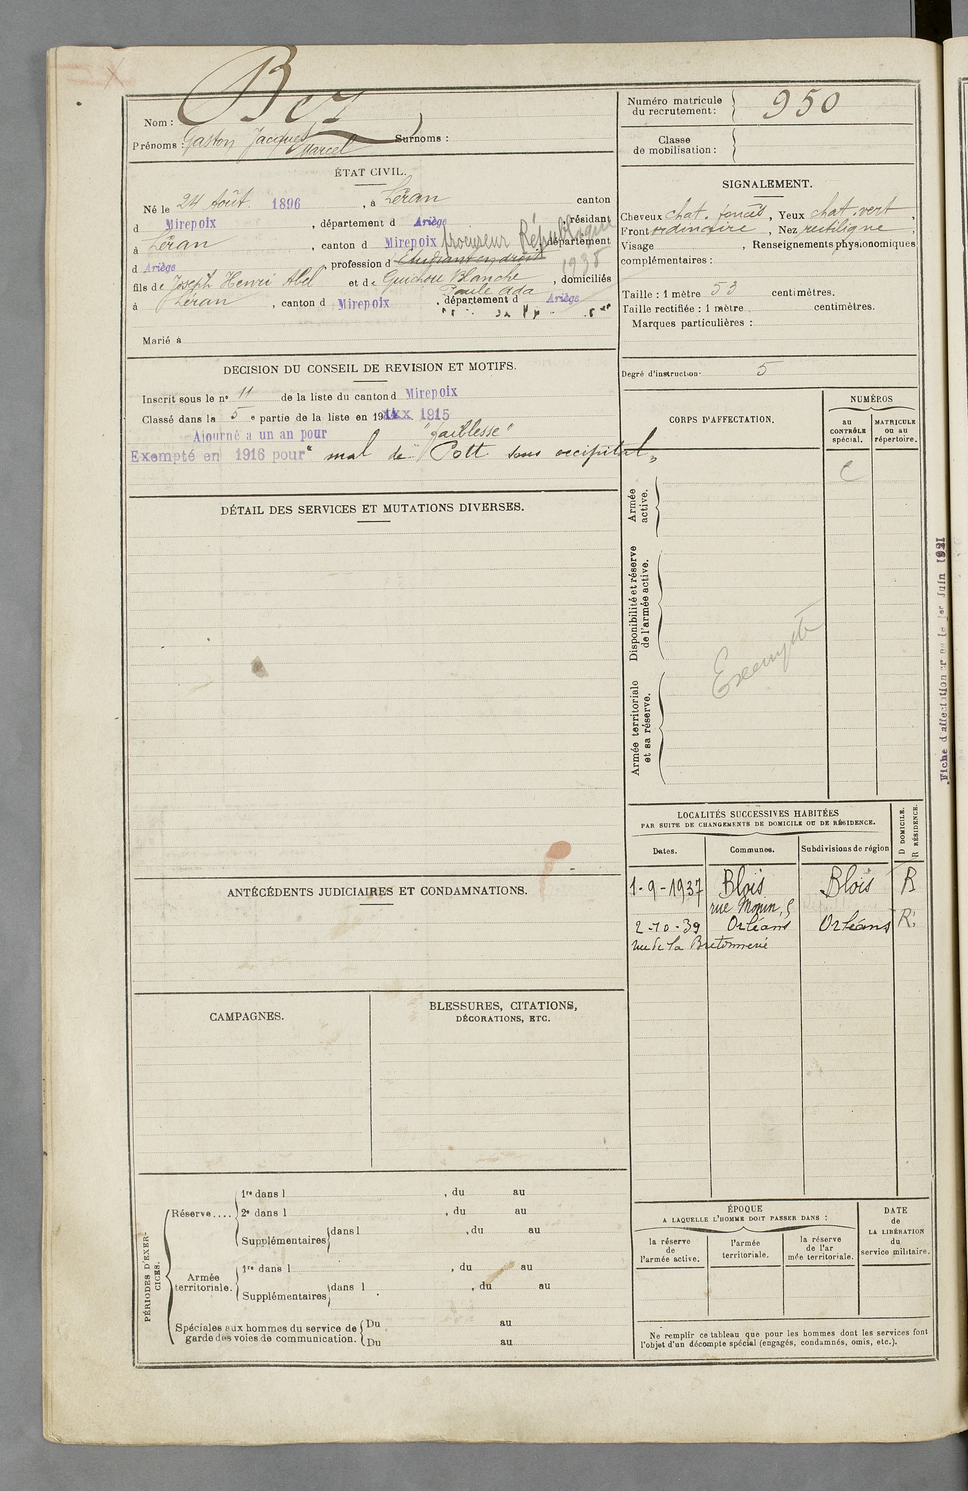 Nom : Bez
Prénoms : Gaston Jacques Marcel Surnoms :
ÉTAT CIVIL.
Né le 24 Août 1896, à Léran canton
d Mirepoix, département d Ariège, résidant
à Léran, canton d Mirepoix département
d Ariège, profession d Etudiant en droit procureur République 1938
fils de Joseph Henri Abel et de Guichou Blanche Paule Ada, domiciliés
à Léran, canton d Mirepoix, département d Ariège
Marié à
DECISION DU CONSEIL DE REVISION ET MOTIFS.
Inscrit sous le n° 11 de la liste du canton d Mirepoix
Classé dans la 5e partie de la liste en 1915
Ajourné a un an pour "faiblesse"
Exempté en 1916 pour "mal de Pott sous occipital"
DÉTAIL DES SERVICES ET MUTATIONS DIVERSES.
ANTÉCÉDENTS JUDICIAIRES ET CONDAMNATIONS.
CAMPAGNES.
BLESSURES, CITATIONS,
DÉCORATIONS, ETC.
PÉRIODES D'EXERCICES.
Réserve....
1re dans l , du au
2e dans l , du au
Supplémentaires dans l , du au
Armée territoriale.
1re dans l , du au
Supplémentaires dans l , du au
Spéciales aux hommes du service de garde des voies de communication.
Du au
Du au
Numéro matricule du recrutement : 950
Classe de mobilisation :
SIGNALEMENT.
Cheveux chat. foncés, Yeux chat. vert,
Front ordinaire, Nez rectiligne,
Visage , Renseignements physionomiques
complémentaires :
Taille : 1 mètre 53 centimètres.
Taille rectifiée : 1 mètre centimètres.
Marques particulières :
Degré d'instruction 5
CORPS D'AFFECTATION.
NUMÉROS
au CONTRÔLE spécial.
MATRICULE ou au répertoire.
C
Armée active.
Disponibilité et réserve de l'armée active.
Armée territoriale et sa réserve.
Exempté
LOCALITÉS SUCCESSIVES HABITÉES
PAR SUITE DE CHANGEMENTS DE DOMICILE OU DE RÉSIDENCE.
D DOMICILE.
R RÉSIDENCE.
Dates. Communes. Subdivisions de région
1-9-1937 Blois Blois R
rue Monin, 5
2-10-39 Orléans Orléans R.
rue de la Bretonnerie
ÉPOQUE
A LAQUELLE L'HOMME DOIT PASSER DANS :
la réserve de l'armée active.
l'armée territoriale.
la réserve de l'armée territoriale.
DATE de LA LIBÉRATION du service militaire.
Ne remplir ce tableau que pour les hommes dont les services font
l'objet d'un décompte spécial (engagés, condamnés, omis, etc.).
Fiche d'affectation le 1er Juin 1921